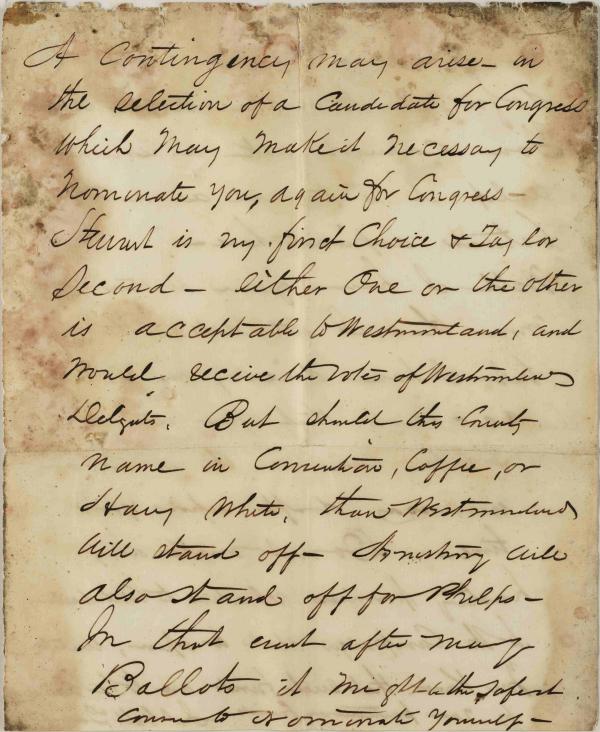 A Contingency may arise - in
the selection of a Candidate for Congress
which May Make it necessary to
Nominate You, again for Congress -
Stewart is my first Choice & Taylor
Second - either One or the other
is acceptable to Westmoreland, and
would receive the votes of Westmoreland
Delegats. But should this County
name in Convention, Coffee, or
Harry White, than Westmoreland
will stand off - Armstrong will
also stand off for Phelps -
In that event after many
Ballots it might be the safest
course to Nominate Yourself -